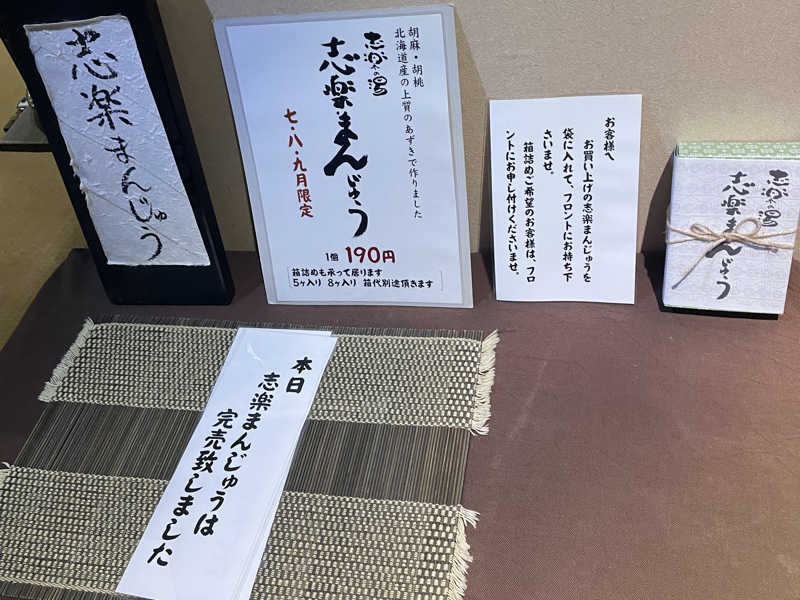 志楽まんじゅう
胡麻・胡桃
北海道産の上質のあずきで作りました
志楽の湯
志楽まんじゅう
七・八・九月限定
1個 190円
箱詰めも承って居ります
5ヶ入り 8ヶ入り 箱代別途頂きます
お客様へ
お買い上げの志楽まんじゅうを
袋に入れて、フロントにお持ち下
さいませ。
箱詰めご希望のお客様は、フロ
ントにお申し付けくださいませ。
志楽の湯
志楽まんじゅう
本日
志楽まんじゅうは
完売致しました